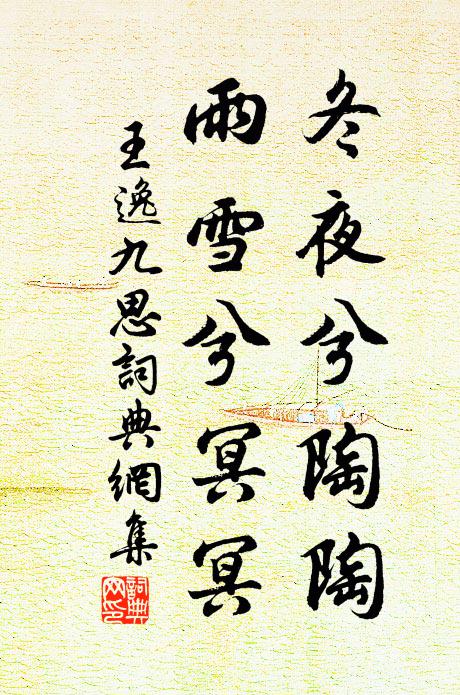 冬夜兮陶陶
雨雪兮冥冥
王逸九思詞典網集
詞典
网印